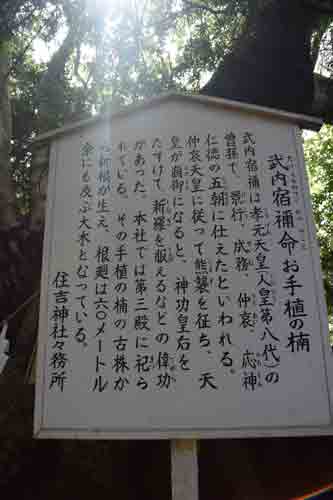 武内宿禰命 お手植の楠
武内宿禰は孝元天皇(人皇第八代)の
曽孫で、景行、成務、仲哀、応神
仁徳の五朝に仕えたといわれる。
仲哀天皇に従って熊襲を征ち、天
皇が崩御になると、神功皇后を
たすけて、新羅を服えるなどの偉功
があった。本社では第三殿に祀ら
れている。その手植の楠の古株か
ら新根が生え、根廻は六〇メートル
余にも及ぶ大木となっている。
住吉神社々務所